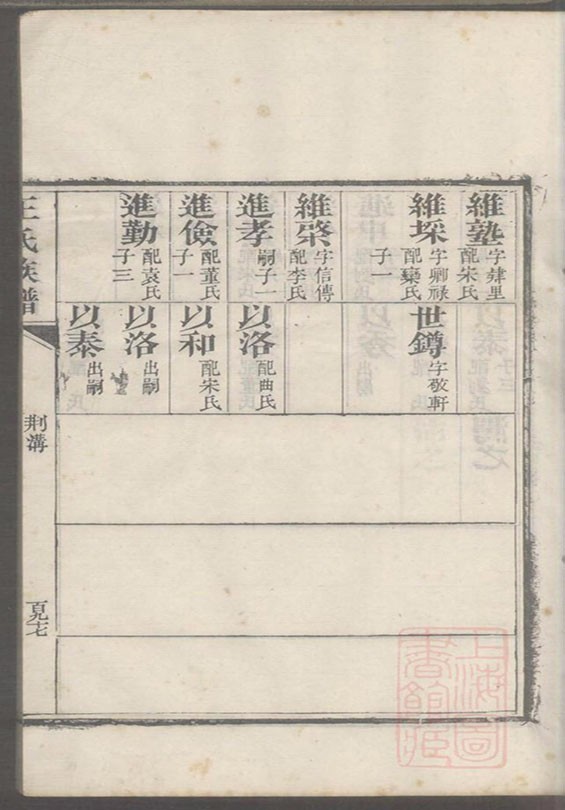 維塾 字肄里 配宋氏
維埰 字卿禄 配欒氏 子一
維棨 字信傳 配李氏
進孝 嗣子一 配宋氏
進儉 配董氏 子一
進勤 配袁氏 子三
世鐏 字敬軒
以洛 配曲氏
以和 配宋氏
以洛 出嗣
以泰 出嗣
王氏族譜
荆溝
百九七
上海圖書館藏